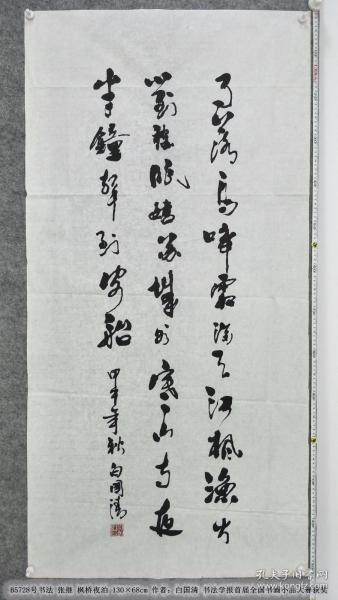 月落烏啼霜滿天江楓漁火
對愁眠姑蘇城外寒山寺夜
半鐘聲到客船 甲午年秋 白国清
85728号书法 张继 枫桥夜泊 130×68cm 作者：白国清 书法学报首届全国书画小品大赛获奖
孔夫子旧书网